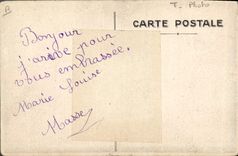 B
T. Photo
CARTE POSTALE
Bonjour
j'arrive pour
vous embrassée.
Marie Louise
Masse